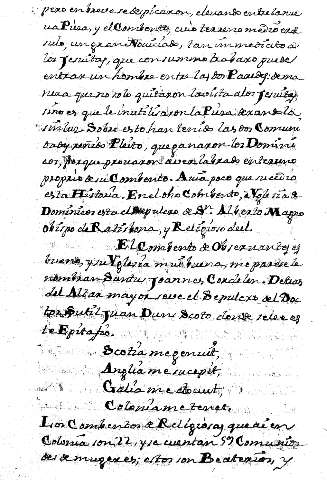 pero en breve se despicaron, elevando entre la nue
va Pieza, y el Combento, cuio terreno medio era
suio, un gran Noviciado, tan inmediato a
los Jesuitas, que con summo trabaxo puede
entrar un hombre entre las dos Paredes, de ma
nera que no solo quitaron la vista a los Jesuitas,
sino es que le inutilisaron la Pieza dexandola
sin luz. Sobre esto han tenido las dos Comuni
dades reñido Pleito, que ganaron los Domini
cos, porque provaron aver labrado en terreno
proprio de su Combento. Avia poco que sucedio
esta Historia. En el dho Combento, e Yglesia de
Dominicos esta el Sepulcro de Sn. Alberto Magno
obispo de Ratisbona, y Religioso del.
El Combento de Observantes es
bueno, y su Yglesia mui buena, me parece le
nombran Santus Joannes, Cordelen. Detras
del Altar mayor se ve el Sepulcro del Doc
tor Sutil Juan Duns Scoto donde se lee es
te Epitafio.
Scotia me genuit,
Anglia me sucepit,
Galia me docuit,
Colonia me tenet.
Los Combentos de Religiosos, que ai en
Colonia son 22, y se cuentan 59 Comunida
des de mugeres; estos son Beaterios, y